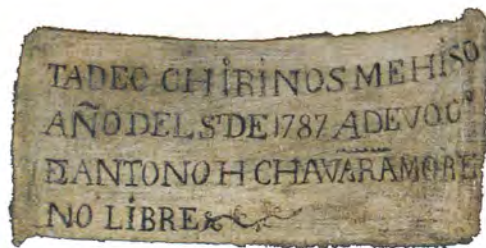 TADEO CHIRINOS ME HISO
AÑO DEL Sr DE 1787 A DEVOCn
DE ANTONO H CHAVARA MORE
NO LIBRE